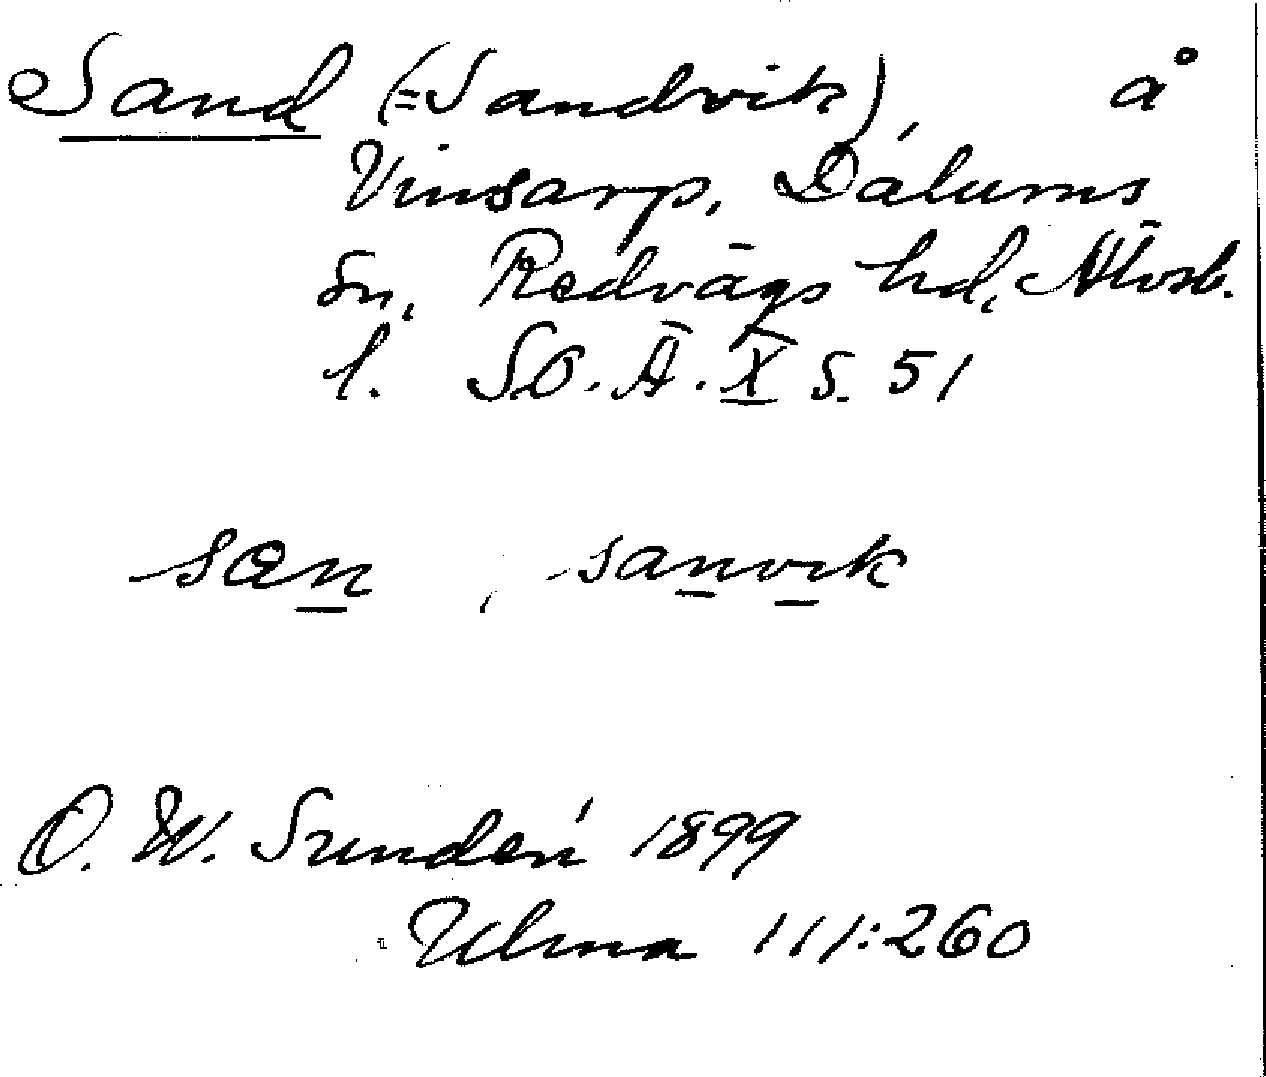 Sand (=Sandvik), å
Vinsarp, Dalums
sn, Redvägs hd, Älvsb.
l. SO.Ä. X s. 51
san, sanvik
O. W. Sundén 1899
Ulma 111:260